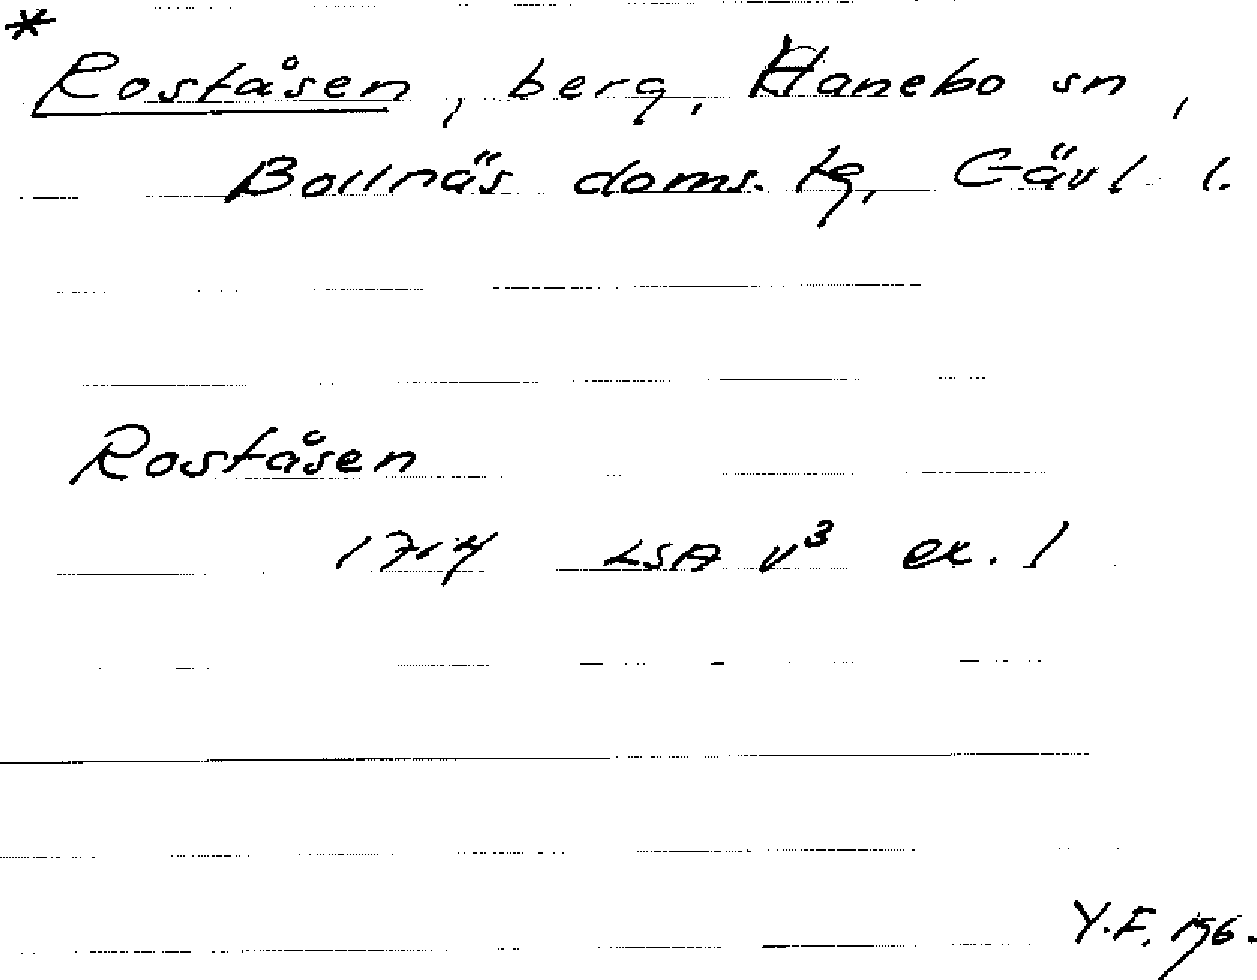 *
Roståsen, berg, Hanebo sn,
Bollnäs doms. tg, Gävl l.
Roståsen
LSA v³ ex. 1
Y.F.